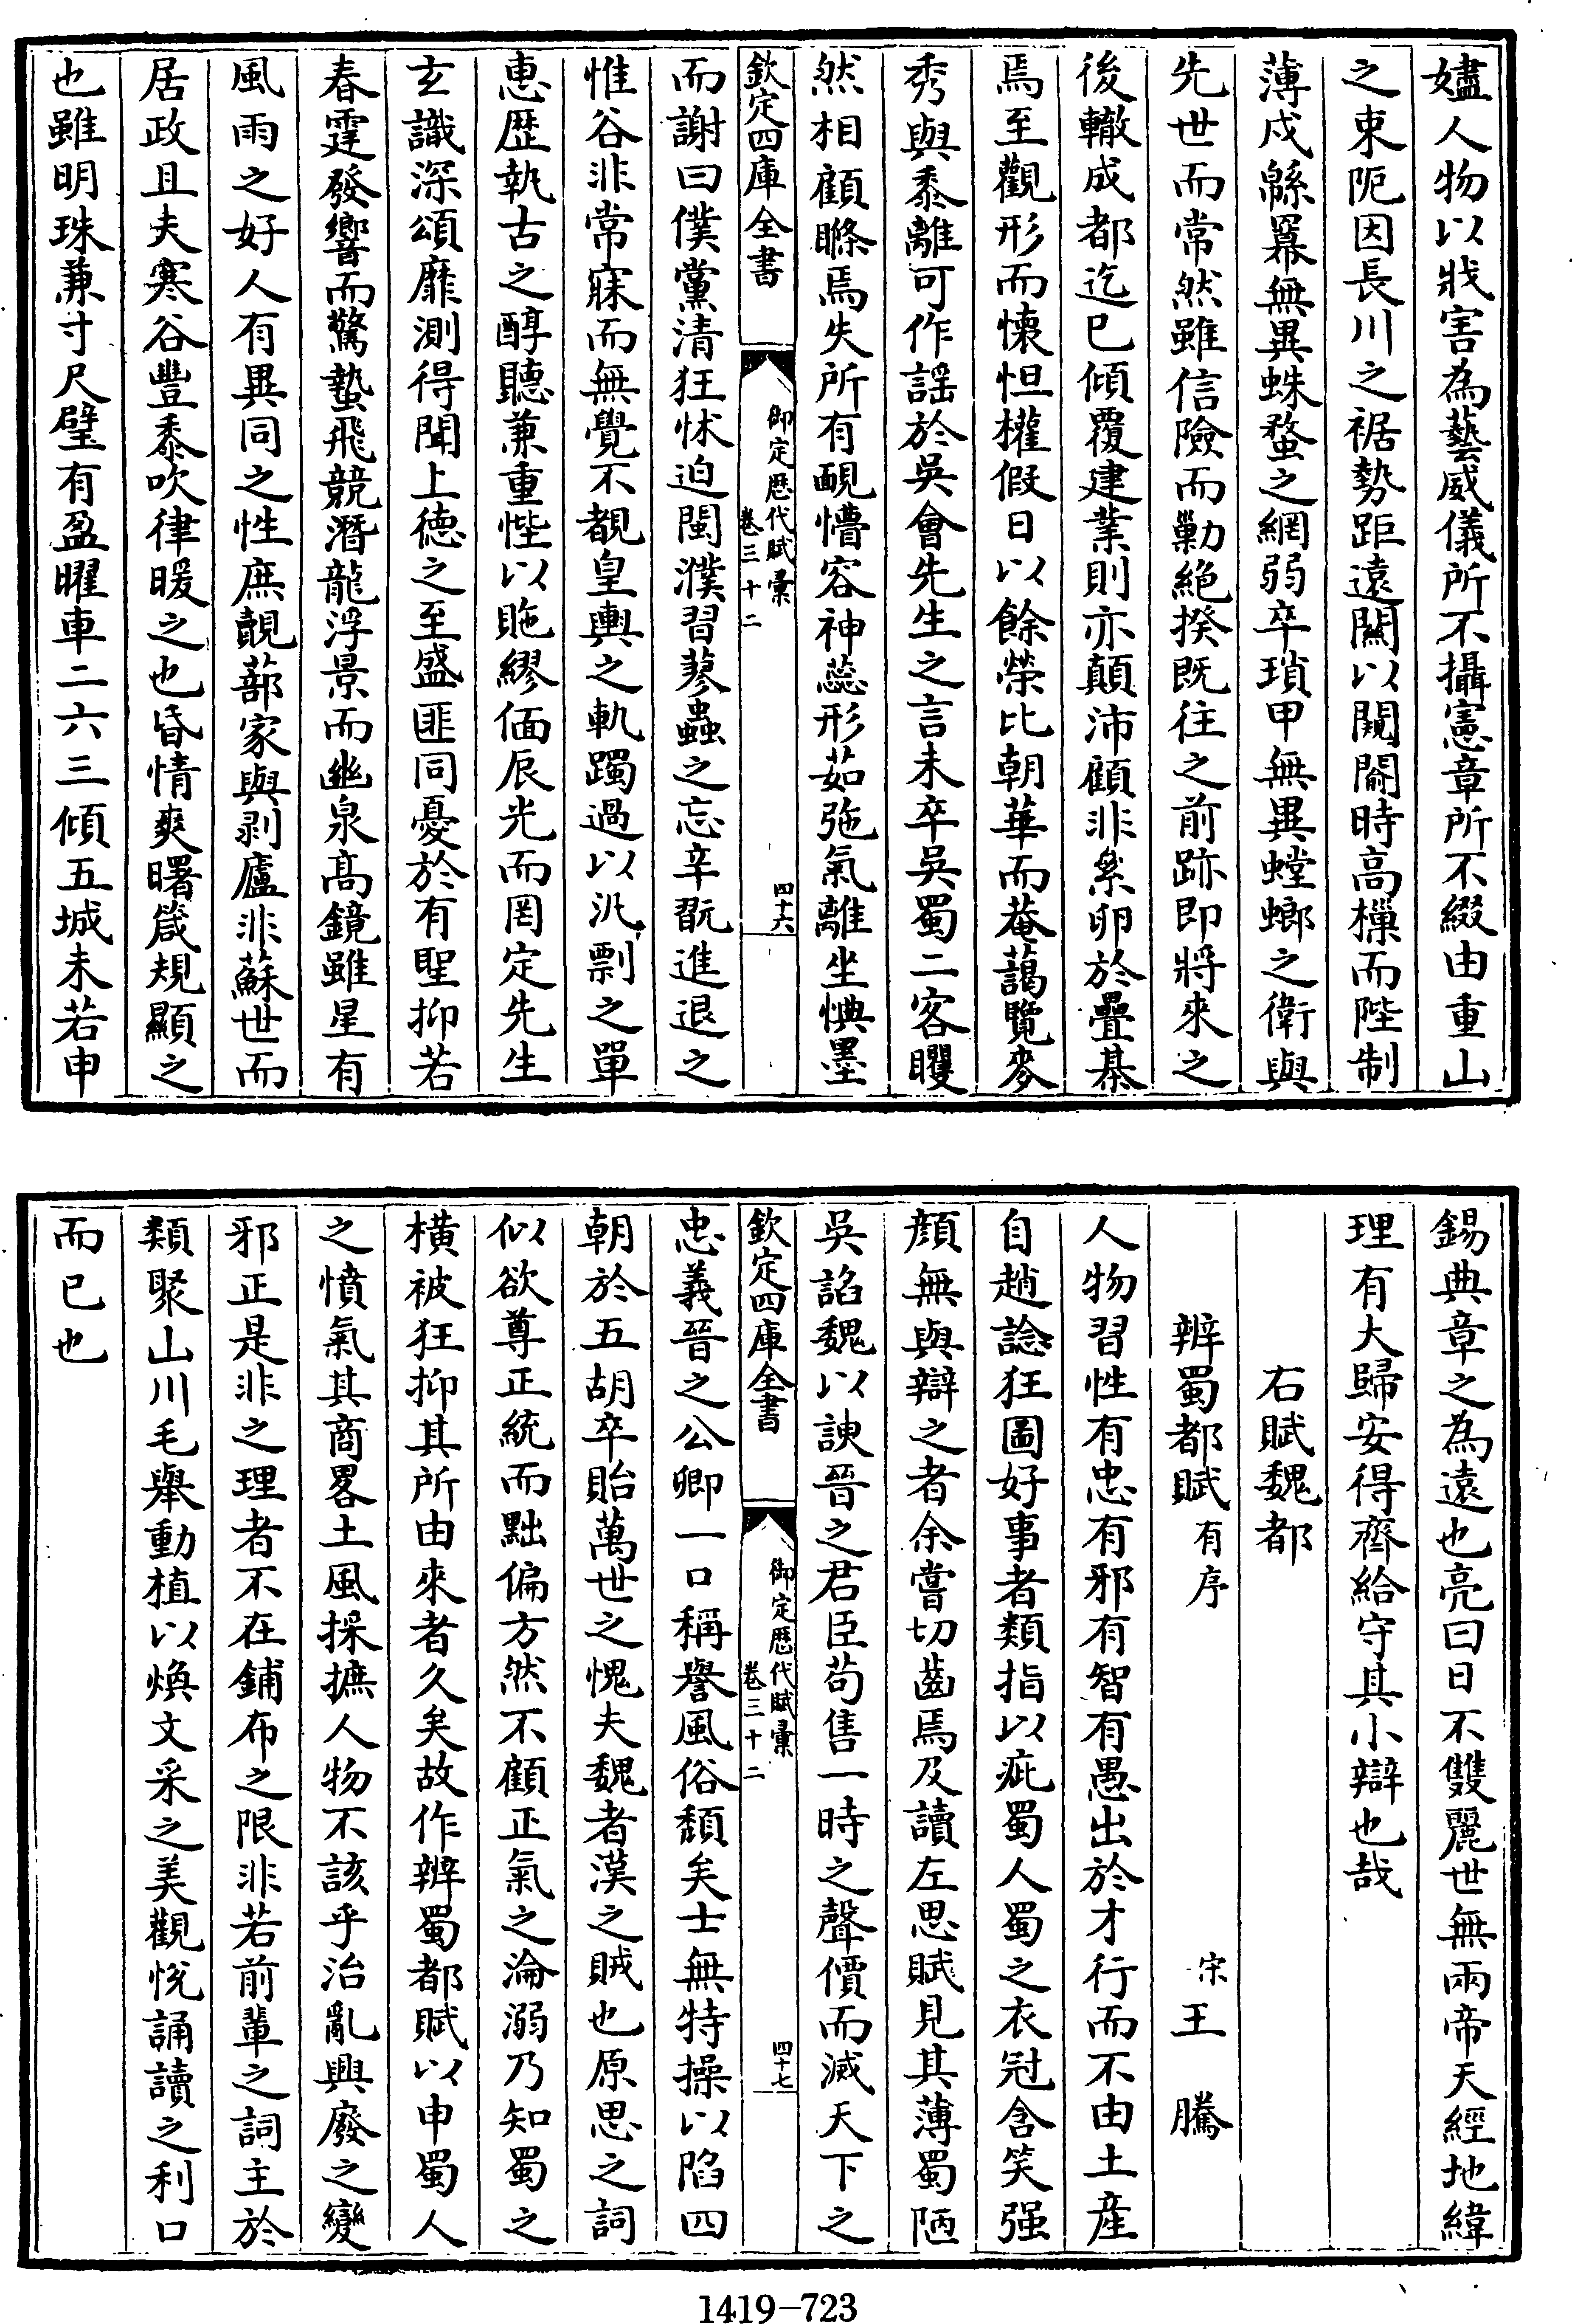 孎人物以戕害為藝威儀所不攝憲章所不綴由重山
之束阨因長川之裾勢距遠關以闚𨵦時高樔而陛制
薄戍緜羃無異蛛蝥之網弱卒瑣甲無異螳螂之衛與
先世而常然雖信險而勦絕揆既往之前跡即將來之
後轍成都迄已傾覆建業則亦顛沛顧非纍卵於疊棊
焉至觀形而懷怛權假日以餘榮比朝華而菴藹覽麥
秀與黍離可作謡於吳會先生之言未卒吳蜀二客矍
然相顧䁑焉失所有靦懵容神蕊形茹弛氣離坐㥏墨
欽定四庫全書
御定歴代賦彙
卷三十二
四十六
而謝曰僕黨清狂怵迫閩濮習蓼蟲之忘辛翫進退之
惟谷非常寐而無覺不覩皇輿之軌躅過以汎剽之單
恵歴執古之醇聽兼重悂以貤繆偭辰光而罔定先生
玄識深頌靡測得聞上徳之至盛匪同憂於有聖抑若
春霆發響而驚蟄飛競潛龍浮景而幽泉高鏡雖星有
風雨之好人有異同之性庶覿蔀家與剥廬非蘇世而
居政且夫寒谷豐黍吹律暖之也昏情爽曙箴規顯之
也雖明珠兼寸尺璧有盈曜車二六三傾五城未若申
錫典章之為遠也亮曰日不雙麗世無兩帝天經地緯
理有大歸安得齊給守其小辯也哉
右賦魏都
辨蜀都賦 有序 宋 王騰
人物習性有忠有邪有智有愚出於才行而不由土產
自趙諗狂圖好事者類指以疵蜀人蜀之衣冠含笑强
顔無與辯之者余嘗切齒焉及讀左思賦見其薄蜀陋
吳諂魏以諛晉之君臣苟售一時之聲價而滅天下之
欽定四庫全書
御定歴代賦彙
卷三十二
四十七
忠義晉之公卿一口稱譽風俗頽矣士無特操以陷四
朝於五胡卒貽萬世之愧夫魏者漢之賊也原思之詞
似欲尊正統而黜偏方然不顧正氣之淪溺乃知蜀之
橫被狂抑其所由來者久矣故作辨蜀都賦以申蜀人
之憤氣其商畧土風採摭人物不該乎治亂興廢之變
邪正是非之理者不在鋪布之限非若前輩之詞主於
類聚山川毛舉動植以煥文采之美觀悅誦讀之利口
而已也
1419-723